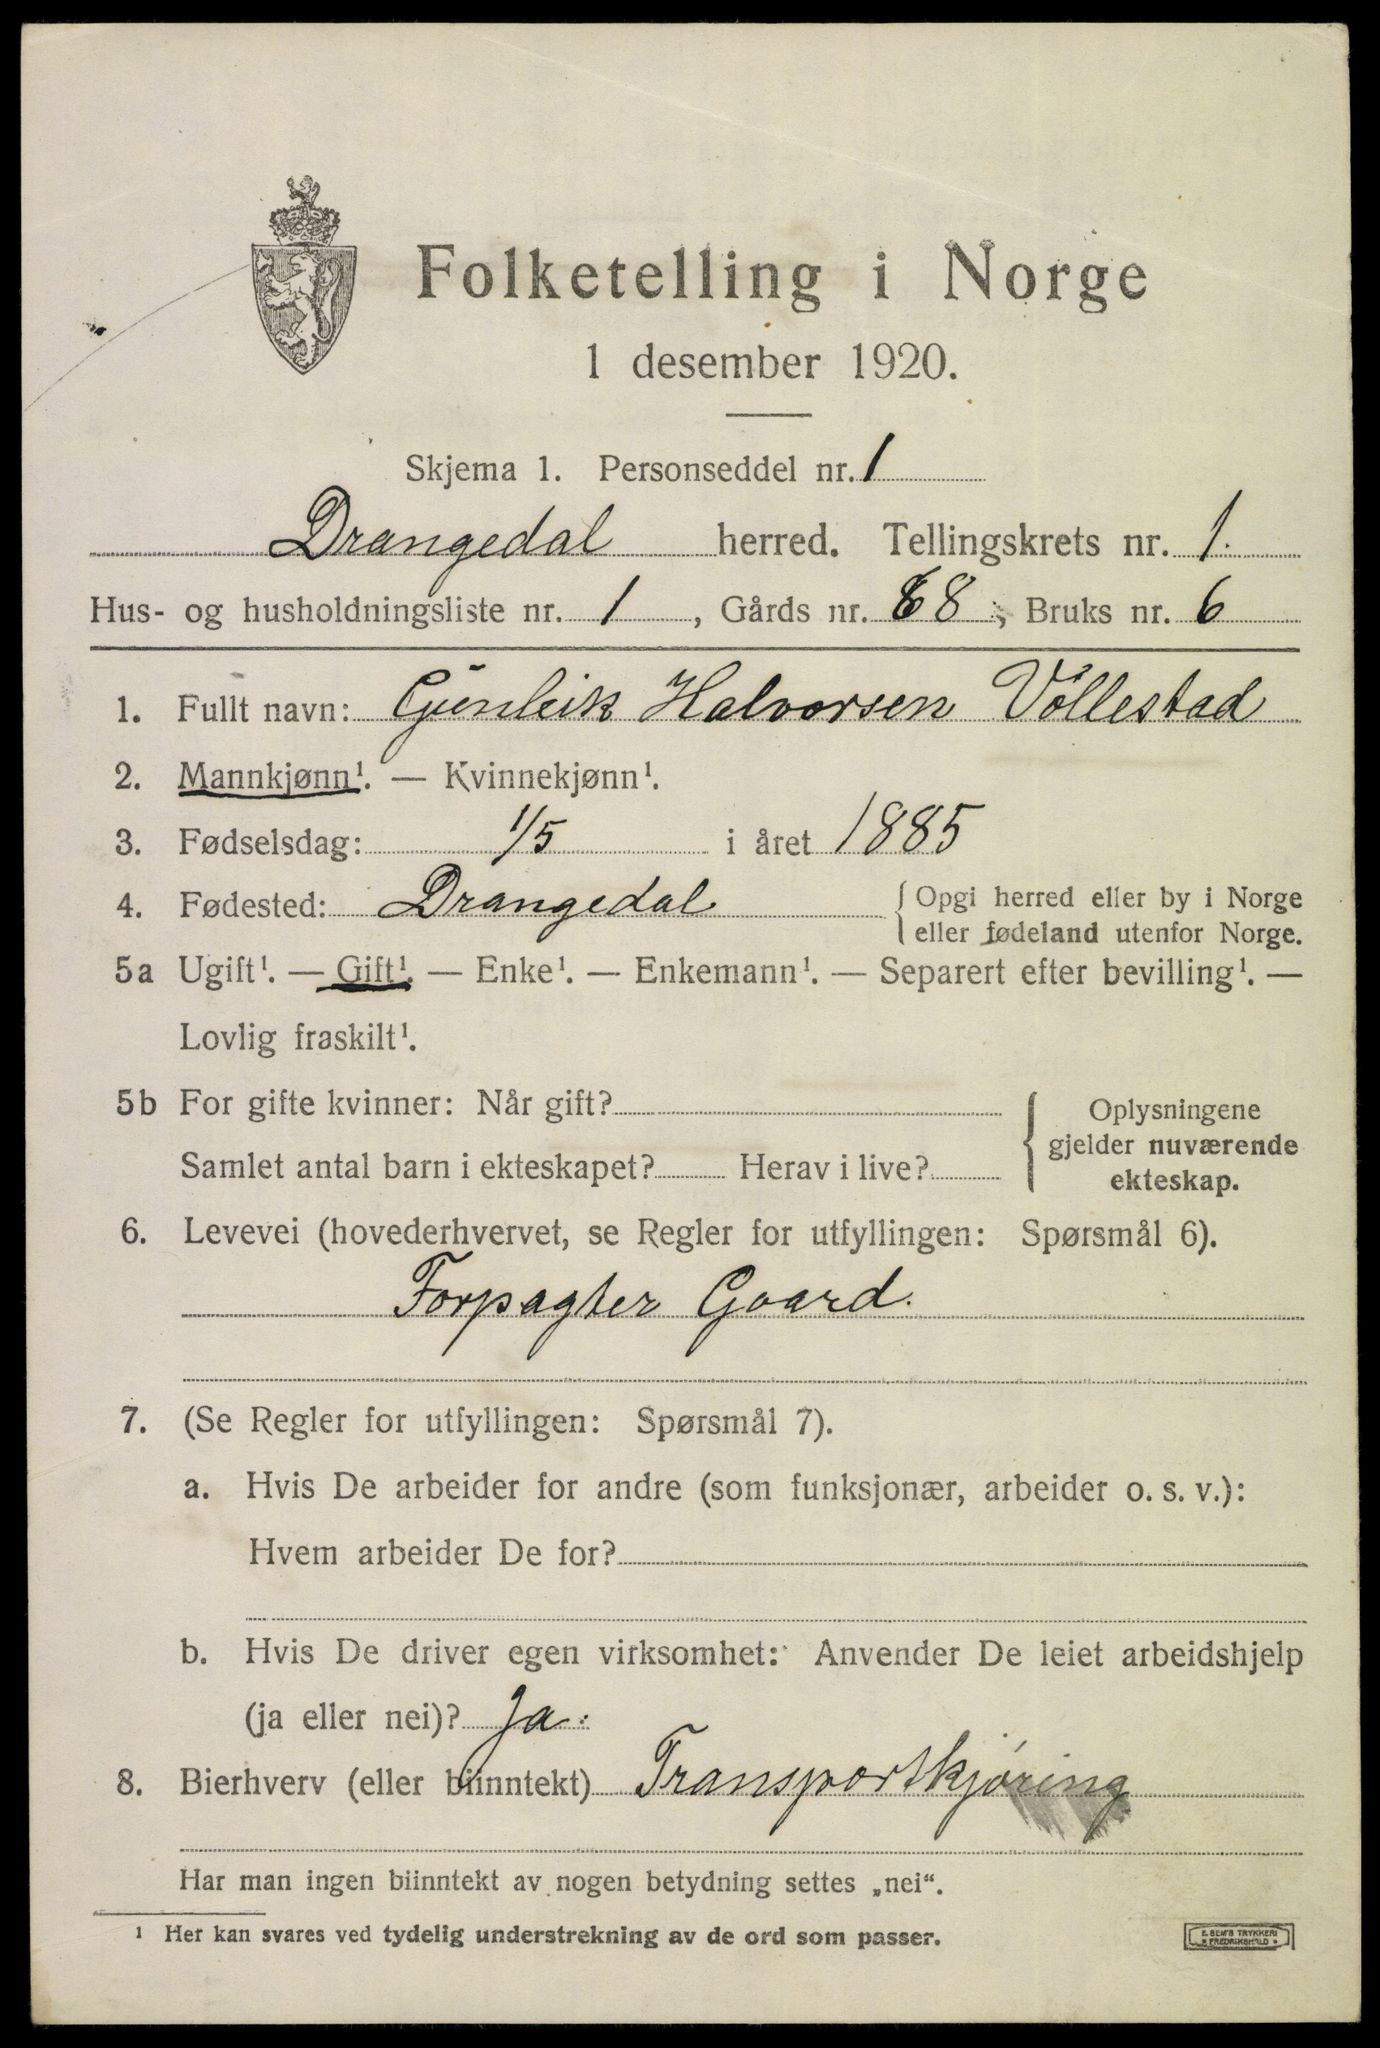 Folketelling i Norge
1 desember 1920.
Skjema 1. Personseddel nr. 1
Drangedal herred. Tellingskrets nr. 1.
Hus- og husholdningsliste nr. 1, Gårds nr. 68, Bruks nr. 6
1. Fullt navn: Gunleik Halvorsen Vóllestad
2. Mannkjønn¹. — Kvinnekjønn¹.
3. Fødselsdag: 1/5 i året 1885
4. Fødested: Drangedal { Opgi herred eller by i Norge
eller fødeland utenfor Norge.
5a Ugift¹. — Gift¹. — Enke¹. — Enkemann¹. — Separert efter bevilling¹. —
Lovlig fraskilt¹.
5b For gifte kvinner: Når gift? { Oplysningene
gjelder nuværende
Samlet antal barn i ekteskapet? Herav i live?
ekteskap.
6. Levevei (hovederhvervet, se Regler for utfyllingen: Spørsmål 6).
Forpagter Gaard.
7. (Se Regler for utfyllingen: Spørsmål 7).
a. Hvis De arbeider for andre (som funksjonær, arbeider o. s. v.):
Hvem arbeider De for?
b. Hvis De driver egen virksomhet: Anvender De leiet arbeidshjelp
(ja eller nei)? Ja.
8. Bierhverv (eller biinntekt) Transportkjóring
Har man ingen biinntekt av nogen betydning settes „nei“.
¹ Her kan svares ved tydelig understrekning av de ord som passer.
E. SEM'S TRYKKERI
FREDRIKSHALD